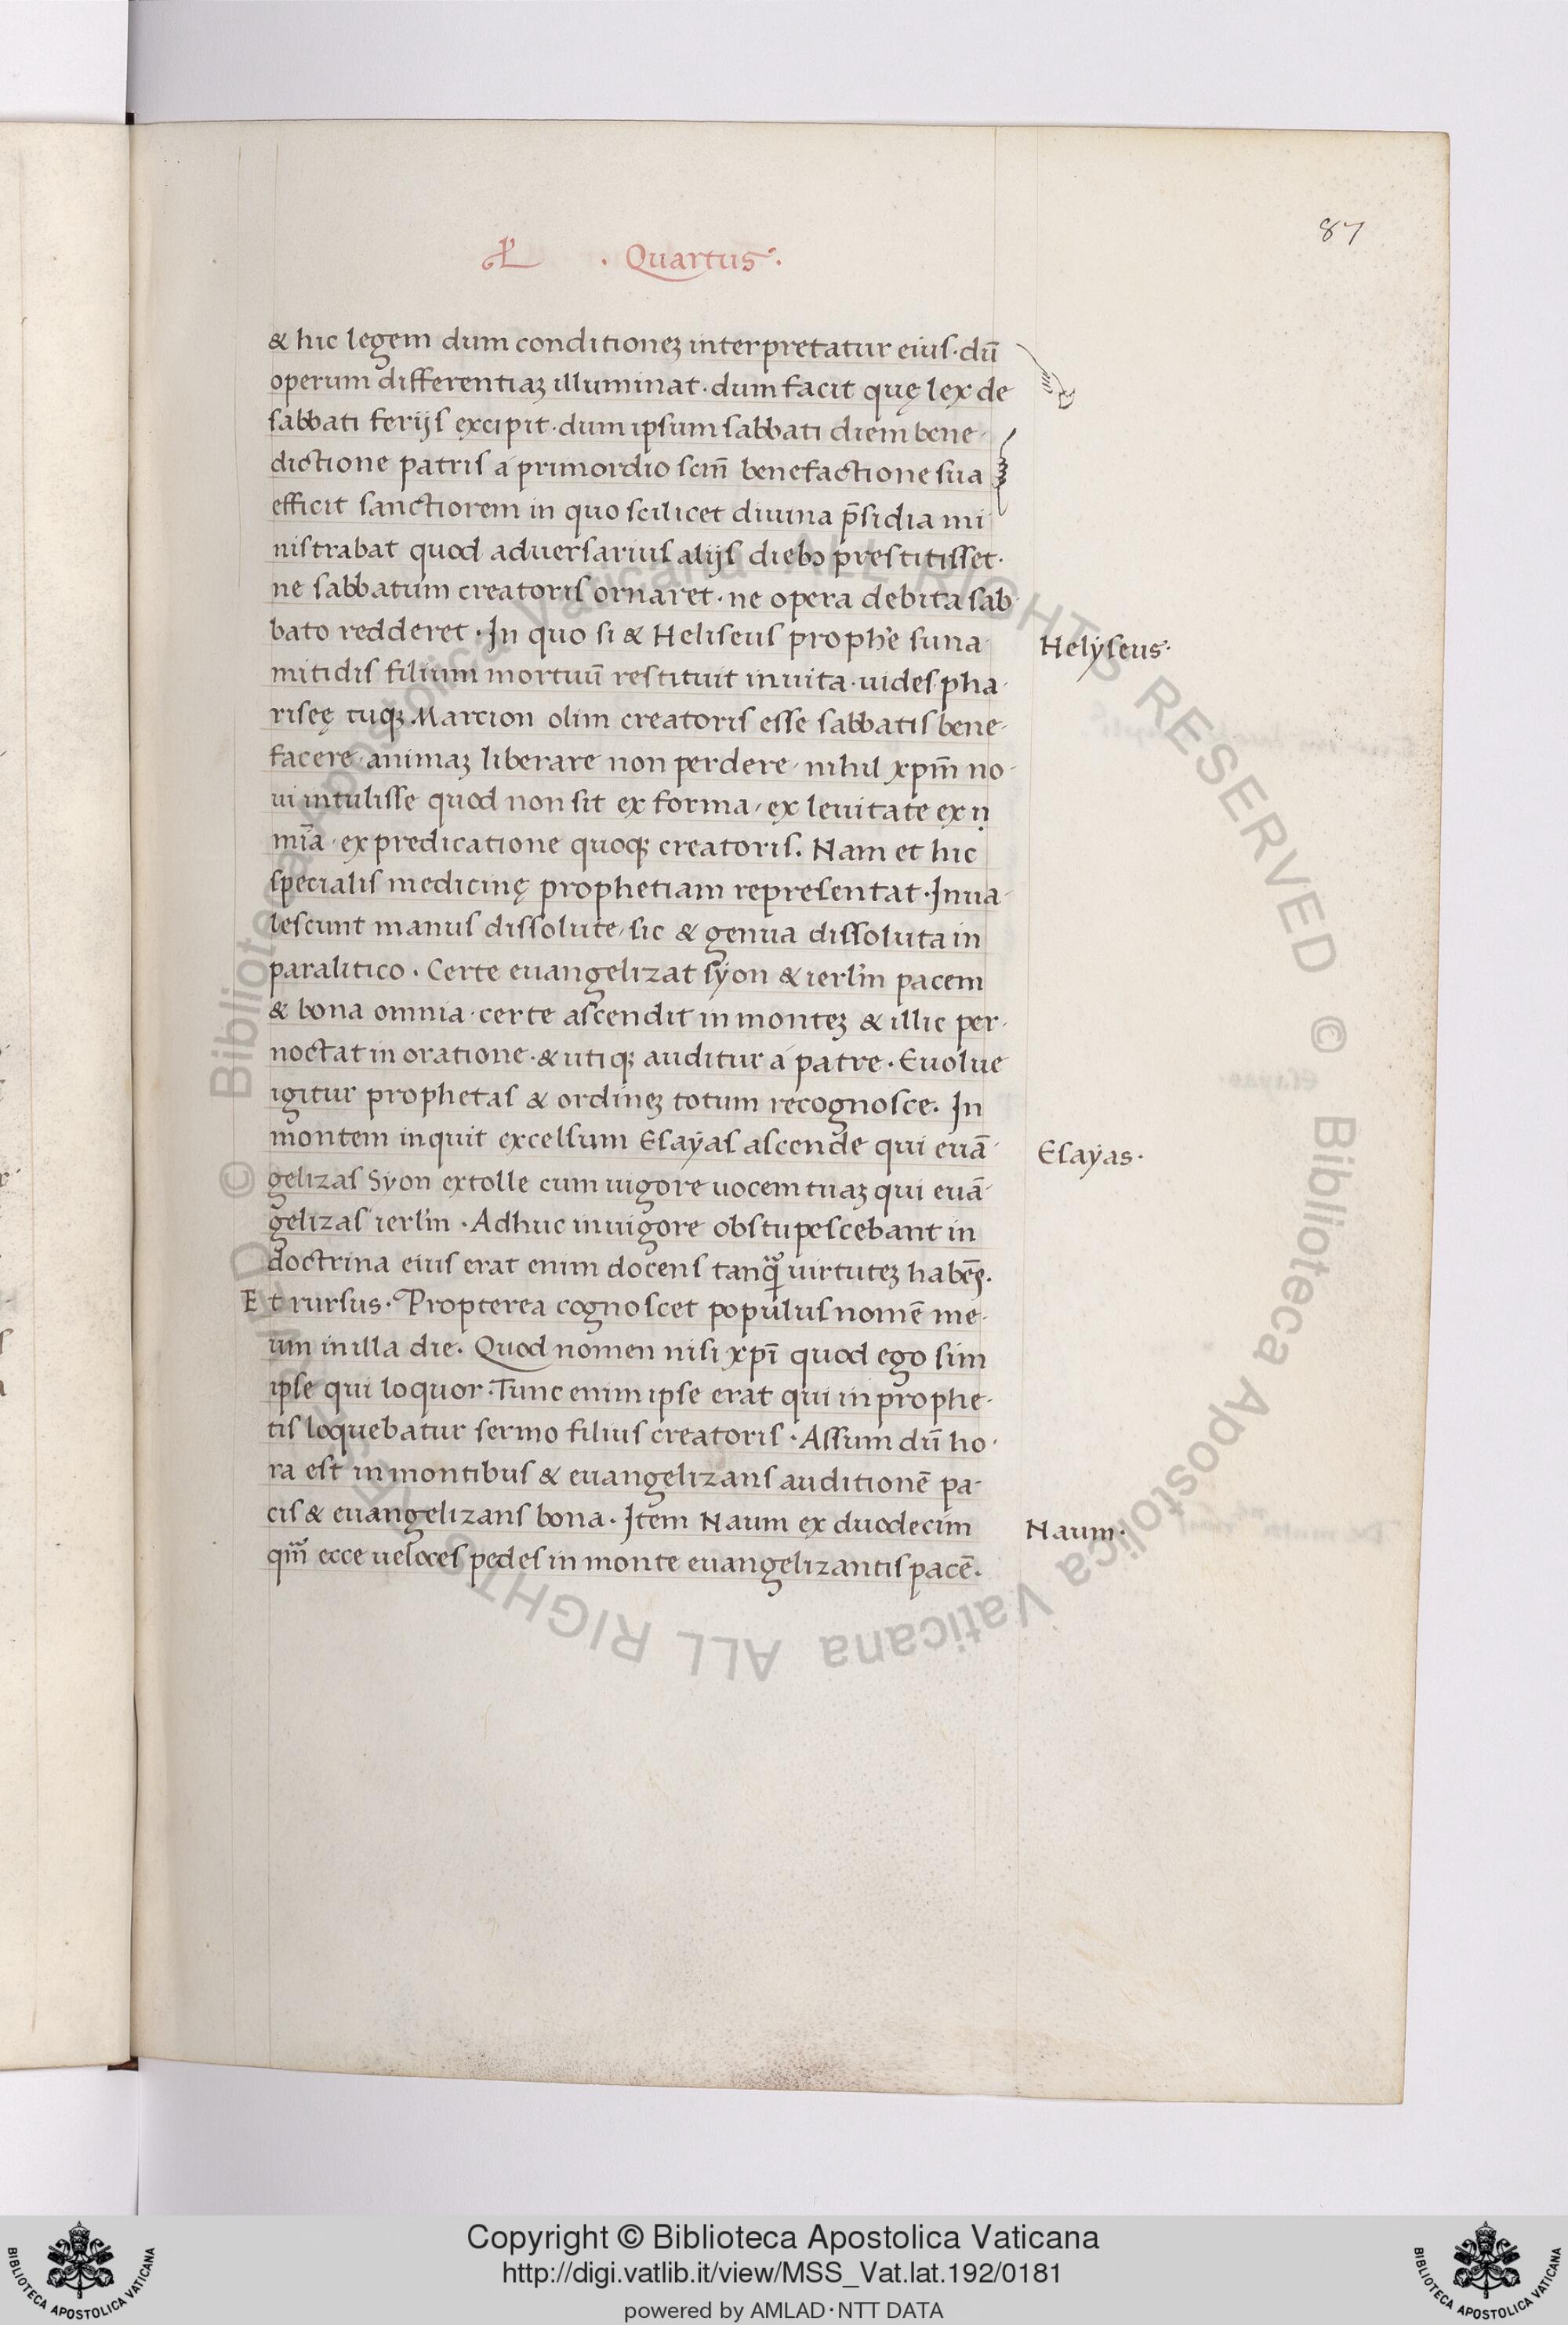 87
L · Quartus ·
& hic legem dum conditionеꝫ interpretatur eius · dū
operum differentiaꝫ illuminat · dum facit quę lex de
sabbati ferijs excipit · dum ipsum sabbati diem bene-
dictione patris a primordio scm̄ benefactione sua
efficit sanctiorem in quo scilicet diuina p̄sidia mi
nistrabat quod aduersarius alijs dieb⁊ prestitisset ·
ne sabbatum creatoris ornaret · ne opera debita sab
bato redderet · In quo si & Heliseus prophe suna-
mitidis filium mortuū restituit in uita · uides pha-
riseę tuqꝫ Marcion olim creatoris esse sabbatis bene-
facere · animaꝫ liberare non perdere · nihil xpm̄ no-
ui intulisse quod non sit ex forma, ex leuitate ex ņ
mīa · ex predicatione quoqꝫ creatoris. Nam et hic
specialis medicinę prophetiam representat · Inua-
lescunt manus dissolute, sic & genua dissoluta in
paralitico · Certe euangelizat syon & ierl̄m pacem
& bona omnia · certe ascendit in monteꝫ & illic per-
noctat in oratione · & utiqꝫ auditur a patre · Euolue
igitur prophetas & ordineꝫ totum recognosce. In
montem inquit excelsum Esayas ascende qui euā-
gelizas Syon extolle cum uigore uocem tuaꝫ qui euā-
gelizas ierl̄m · Adhuc in uigore obstupescebant in
doctrina eius erat enim docens tanq̄ uirtuteꝫ habēs.
Et rursus · Propterea cognoscet populus nomē me-
um in illa die. Quod nomen nisi xpī quod ego sim
ipse qui loquor · Tunc enim ipse erat qui in prophe-
tis loquebatur sermo filius creatoris · Assum dū ho-
ra est in montibus & euangelizans auditionē pa-
cis & euangelizans bona · Item Naum ex duodecim
qm̄ ecce ueloces pedes in monte euangelizantis pacē.
Helyseus ·
Esayas ·
Naum ·
© Biblioteca Apostolica Vaticana ALL RIGHTS RESERVED © Biblioteca Apostolica Vaticana ALL RIGHTS RESERVED
Copyright © Biblioteca Apostolica Vaticana
http://digi.vatlib.it/view/MSS_Vat.lat.192/0181
powered by AMLAD·NTT DATA
BIBLIOTECA APOSTOLICA VATICANA
BIBLIOTECA APOSTOLICA VATICANA